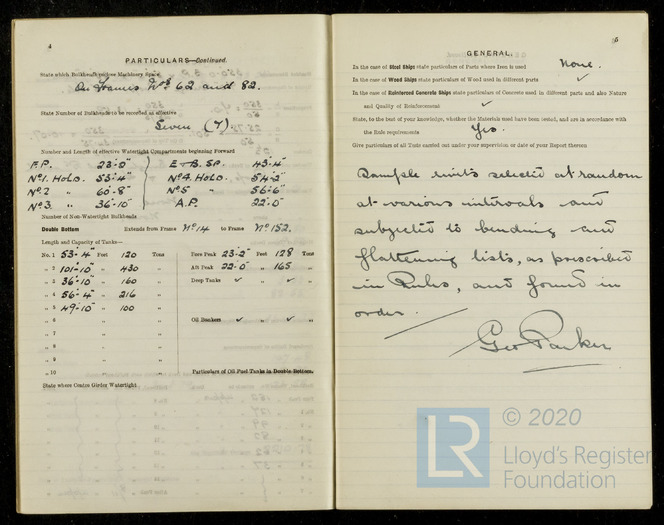 4
PARTICULARS—Continued.
State which Bulkheads enclose Machinery Space
On Frames Nos 62 and 82.
State Number of Bulkheads to be recorded as effective
Seven (7)
Number and Length of effective Watertight Compartments beginning Forward
F.P. 23'-0" E & B. SP. 43'-4"
No 1. HOLD. 53'-4" No 4. HOLD. 54'-2"
No 2 " 60'-8" No 5 " 56'-6"
No 3. " 36'-10" A.P. 22'-0"
Number of Non-Watertight Bulkheads
Double Bottom Extends from Frame No 14 to Frame No 152.
Length and Capacity of Tanks—
No. 1 53'-4" Feet 120 Tons Fore Peak 23'-2" Feet 128 Tons
" 2 101'-10" " 430 " Aft Peak 22'-0" " 165 "
" 3 36'-10" " 160 " Deep Tanks ✓ " ✓ "
" 4 56'-4" " 216 "
" 5 49'-10" " 100 "
" 6 " " Oil Bunkers ✓ " ✓ "
" 7 " "
" 8 " "
" 9 " "
" 10 " " Particulars of Oil Fuel Tanks in Double Bottom.
State where Centre Girder Watertight
5
GENERAL.
In the case of Steel Ships state particulars of Parts where Iron is used None.
In the case of Wood Ships state particulars of Wood used in different parts ✓
In the case of Reinforced Concrete Ships state particulars of Concrete used in different parts and also Nature
and Quality of Reinforcement ✓
State, to the best of your knowledge, whether the Materials used have been tested, and are in accordance with
the Rule requirements Yes.
Give particulars of all Tests carried out under your supervision or date of your Report thereon
Sample units selected at random
at various intervals and
subjected to bending and
flattening tests, as prescribed
in Rules, and found in
order.
Geo Parker
LR
© 2020
Lloyd's Register
Foundation